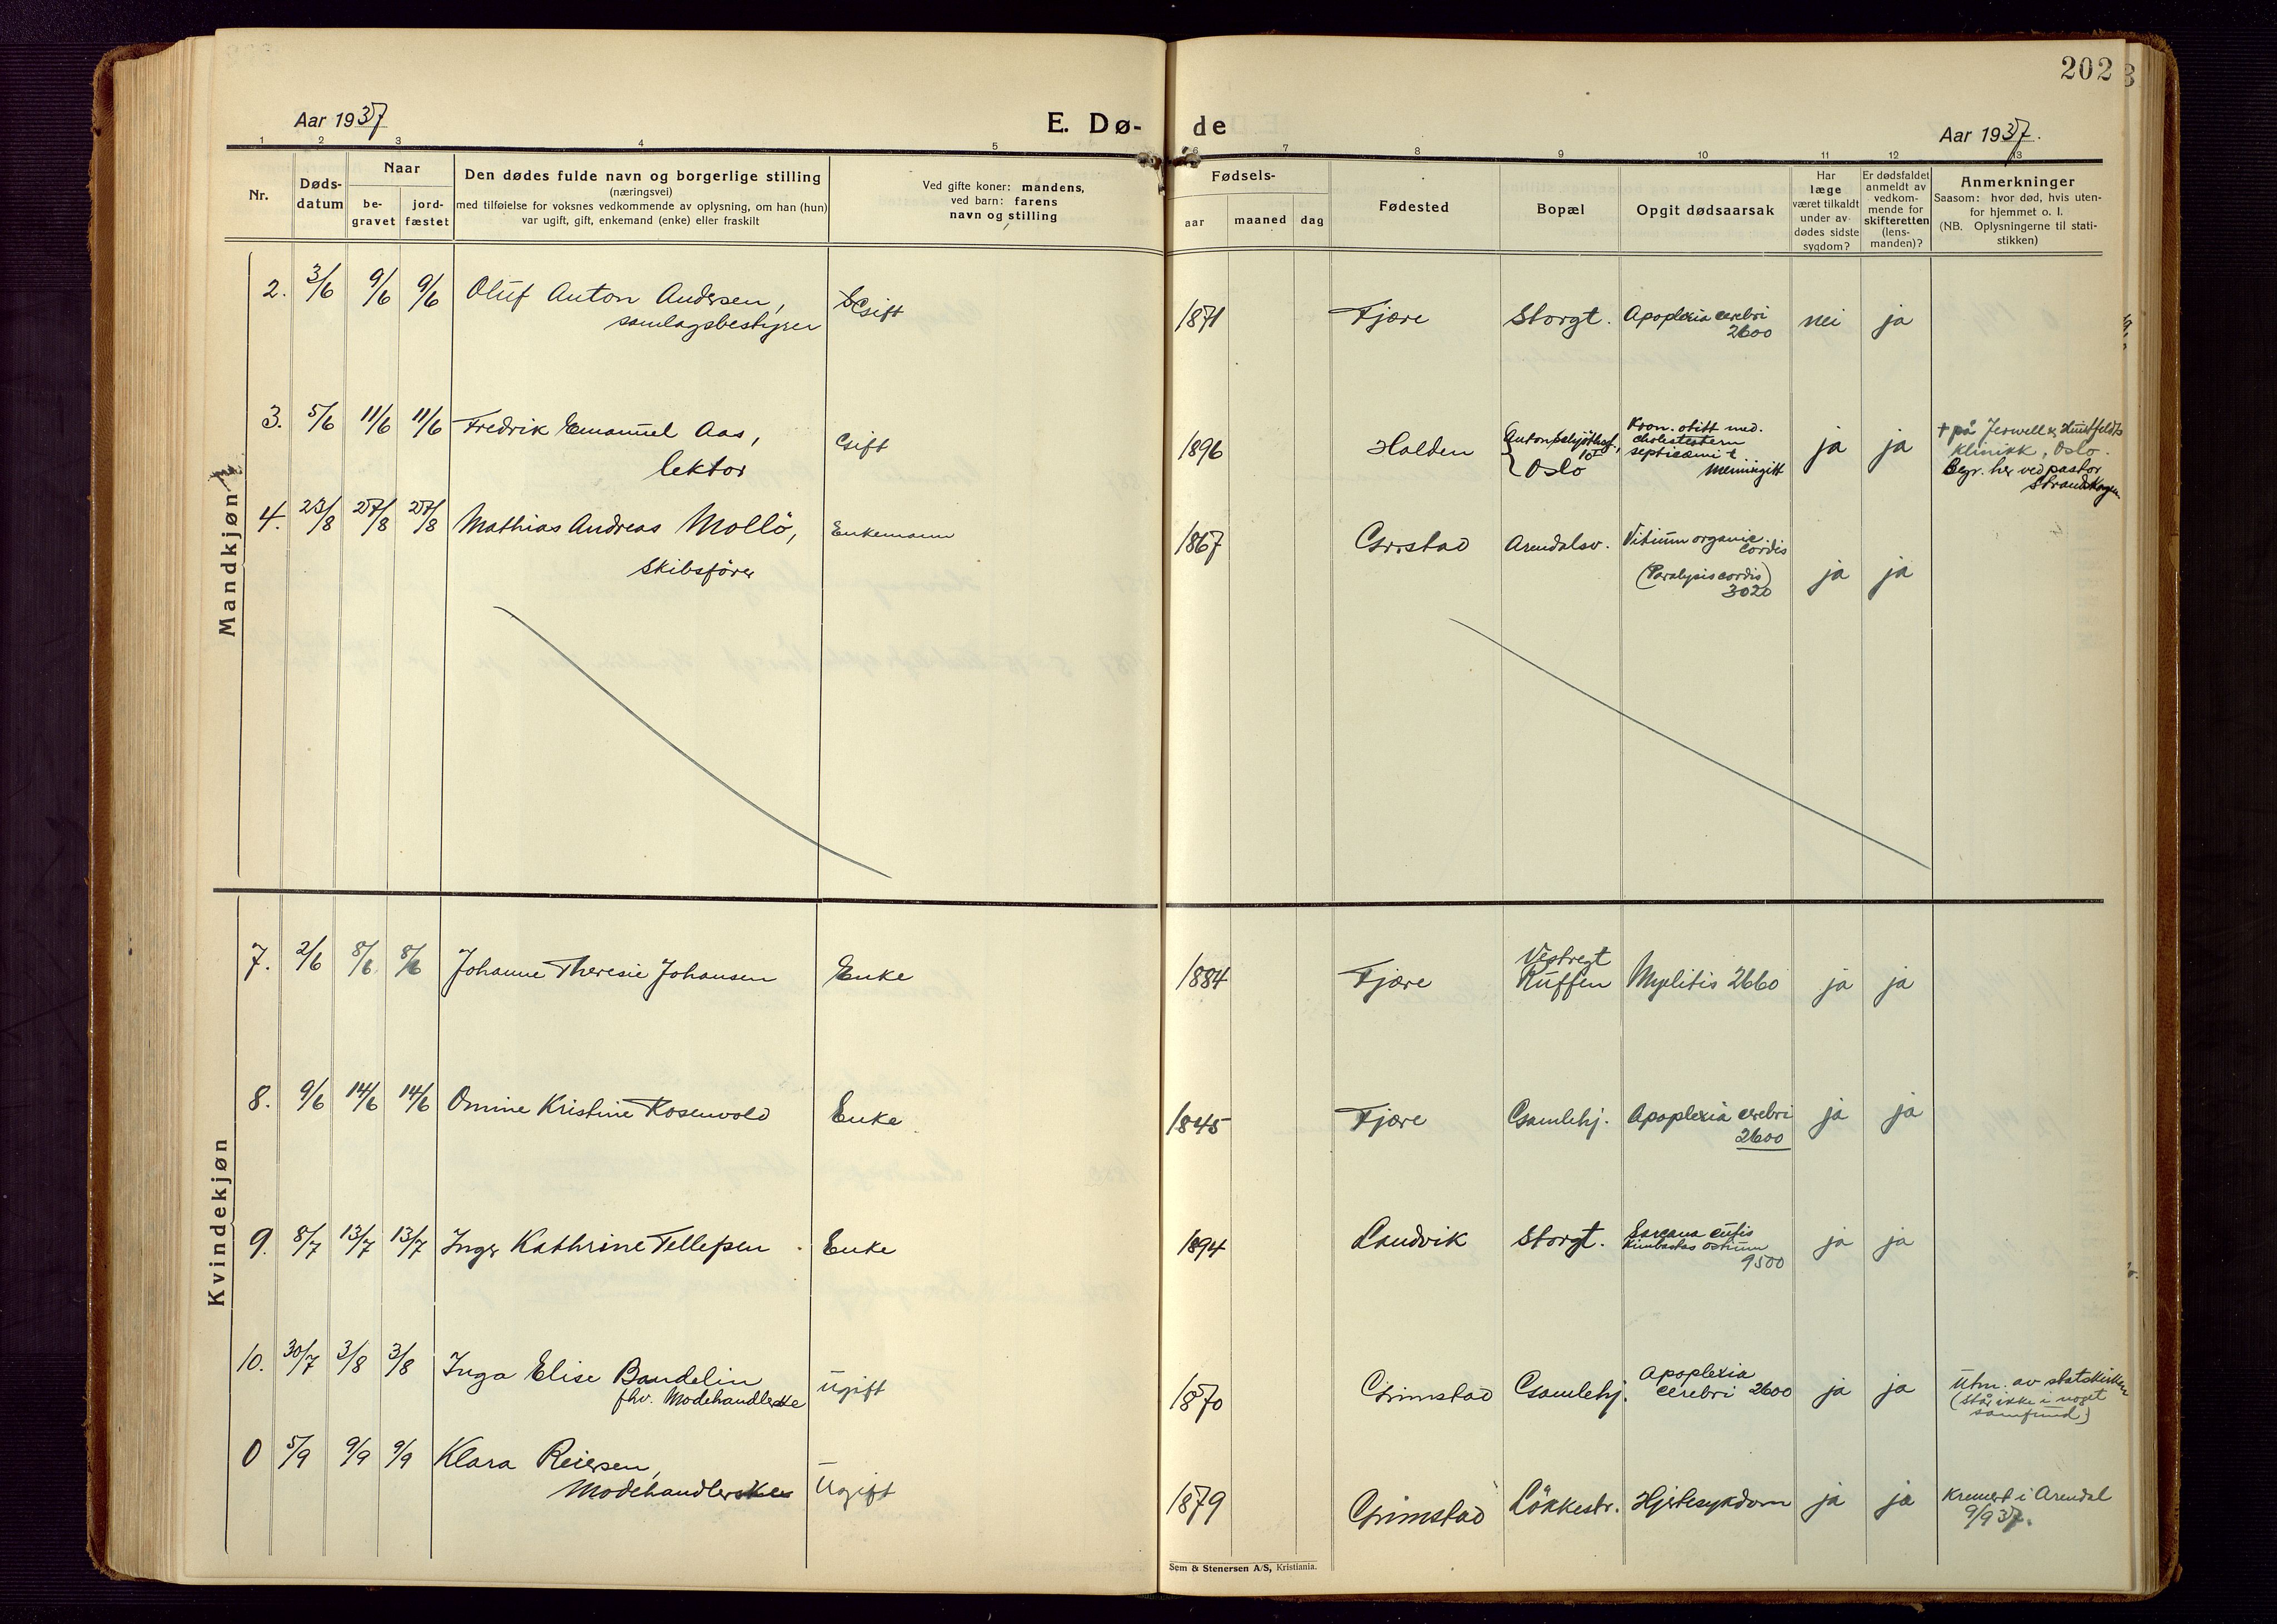 202
Aar 1937
E. Dø-
de
Aar 1937.
1 2 3 4 5 6 7 8 9 10 11 12 13
Nr.
Døds-
datum
Naar
be-
gravet
jord-
fæstet
Den dødes fulde navn og borgerlige stilling
(næringsvei)
med tilføielse for voksnes vedkommende av oplysning, om han (hun)
var ugift, gift, enkemand (enke) eller fraskilt
Ved gifte koner: mandens,
ved barn: farens
navn og stilling
Fødsels-
aar
maaned
dag
Fødested
Bopæl
Opgit dødsaarsak
Har
læge
været tilkaldt
under av-
dødes sidste
sygdom?
Er dødsfaldet
anmeldt av
vedkom-
mende for
skifteretten
(lens-
manden)?
Anmerkninger
Saasom: hvor død, hvis uten-
for hjemmet o. l.
(NB. Oplysningerne til stati-
stikken)
Mandkjøn
2. 3/6 9/6 9/6 Oluf Anton Andersen,
samlagsbestyrer
Gift
1871 Fjære Storgt. Apoplexia cerebri
2600
nei ja
3. 5/6 11/6 11/6 Fredrik Emanuel Aas,
lektor
Gift
1896 Halden
Oslo
Kron. otitt med.
septicæmi
meningitt
ja ja
+ på
klinikk, Oslo.
Begr. her ved pastor
4. 23/8 27/8 27/8 Mathias Andreas Mollö,
Skibsfører
Enkemann
1867 Arendalsv. Vitium organic.
cordis
(Paralysis cordis)
3020
ja ja
Kvindekjøn
7. 2/6 8/6 8/6 Johanne Theresie Johansen Enke
1884 Fjære Vestregt
Kuffen Myelitis 2660 ja ja
8. 9/6 14/6 14/6 Omine Kristine Rosenvold Enke
1845 Fjære Gamlehj. Apoplexia cerebri
2600
ja ja
9. 8/7 13/7 13/7 Inger Kathrine Tellefsen Enke
1894 Landvik Storgt.
9500
ja ja
10. 30/7 3/8 3/8 Inga Elise Bandelin
fhv. Modehandlerske
Ugift
1870 Grimstad Gamlehj. Apoplexia
cerebri 2600 ja ja
Utm. av statskirken
(står ikke i noget
samfund)
0 5/9 9/9 9/9 Klara Reiersen,
Modehandlerske
Ugift
1879 Grimstad Løkkestr. Hjertesykdom ja ja
Kremert i Arendal
9/9 37.
Sem & Stenersen A/S, Kristiania.